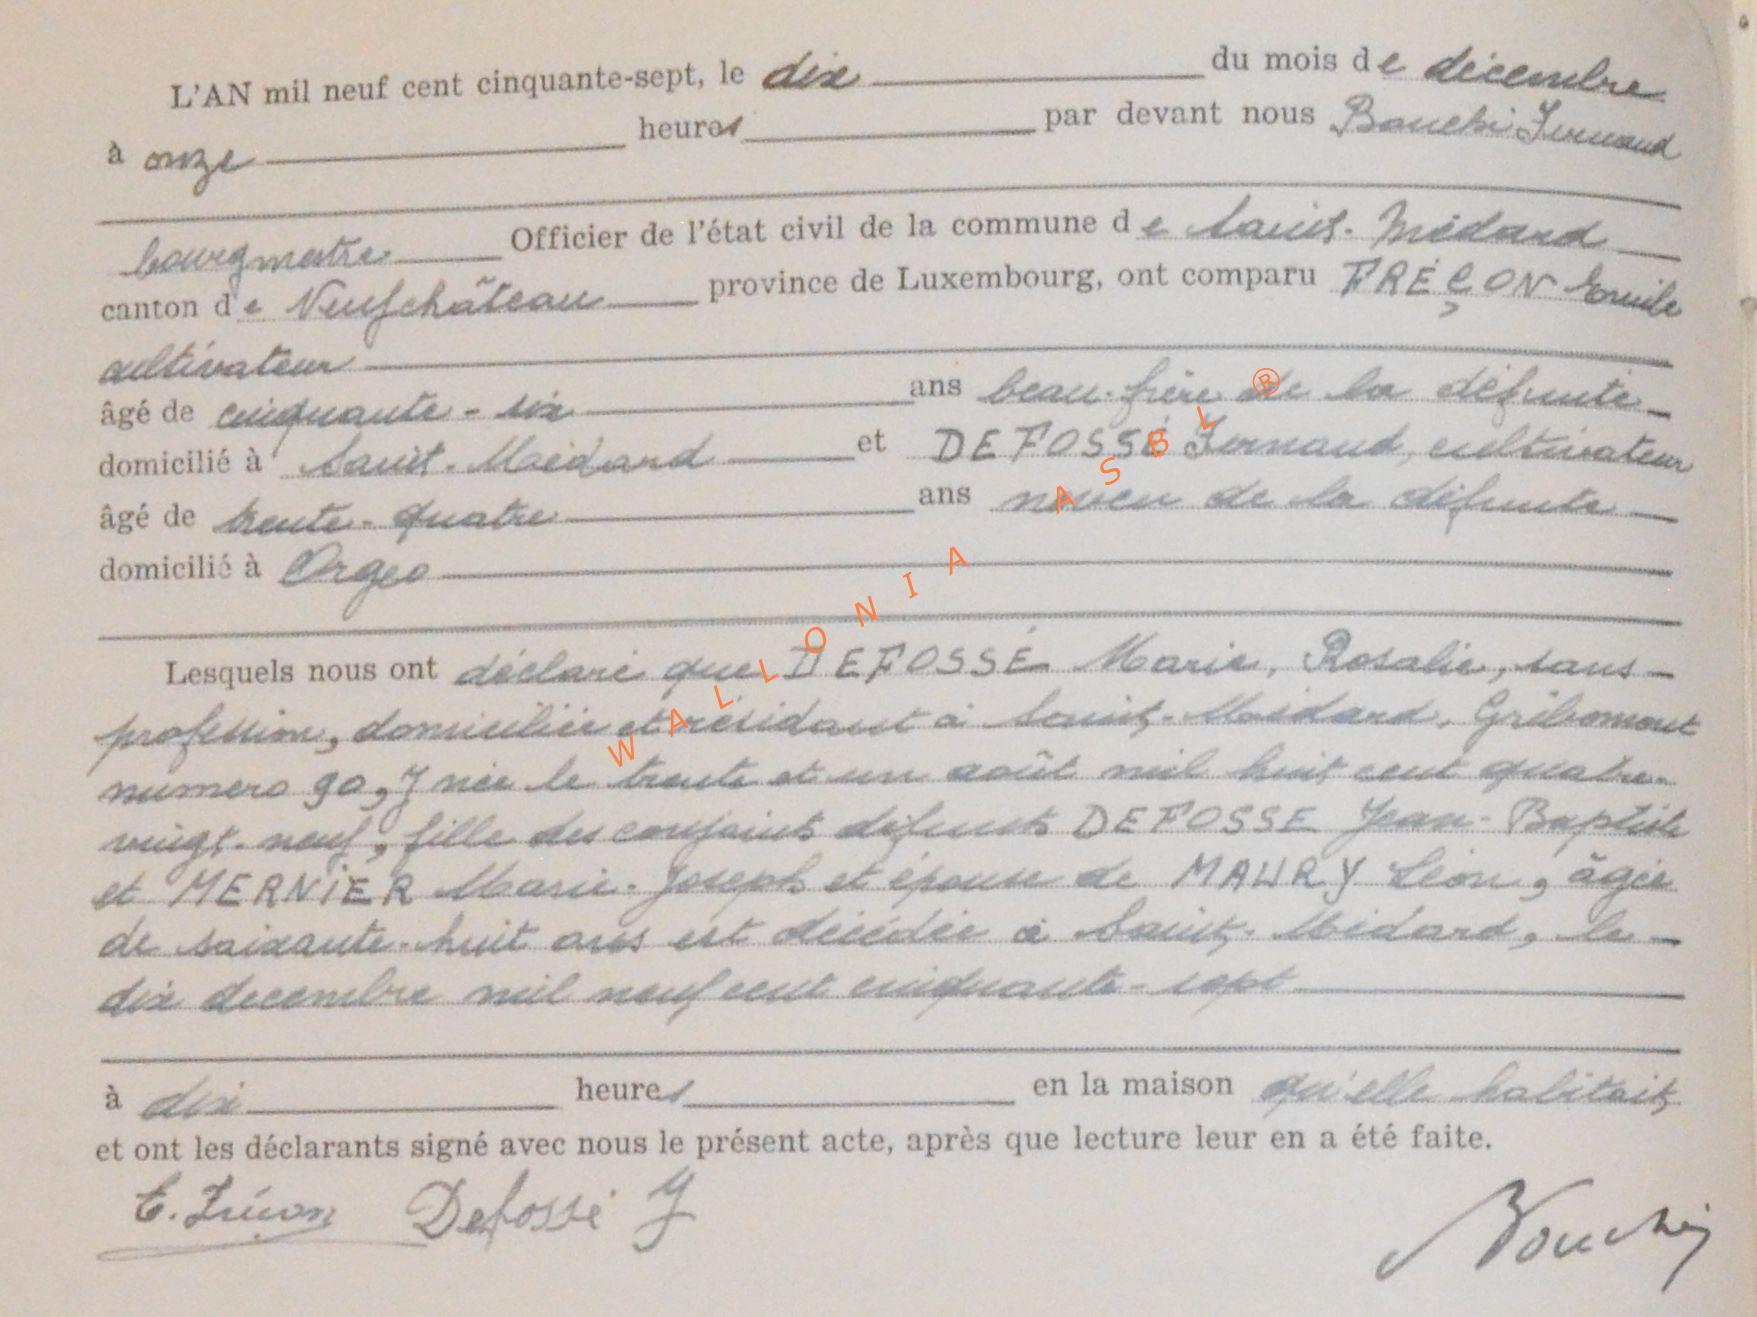 L'AN mil neuf cent cinquante-sept, le dix du mois de décembre
à onze heures par devant nous Fernand
bourgmestre Officier de l'état civil de la commune de Saint-Médard
canton de Neufchâteau province de Luxembourg, ont comparu FRÉÇON Emile
cultivateur
âgé de cinquante-six ans beau-frère de la défunte
domicilié à Saint-Médard et DEFOSSÉ Fernand, cultivateur
âgé de trente-quatre ans neveu de la défunte
domicilié à Orgeo
Lesquels nous ont déclaré que DEFOSSÉ Marie, Rosalie, sans
profession, domiciliée et résidant à Saint-Médard, Gribomont
numero 90, y née le trente et un août mil huit cent quatre-
vingt-neuf, fille des conjoints défunts DEFOSSE Jean-Baptiste
et MERNIER Marie-Joseph et épouse de MAURY Léon, âgée
de soixante-huit ans est décédée à Saint-Médard, le
dix decembre mil neuf cent cinquante-sept
à dix heures en la maison qu'elle habitait,
et ont les déclarants signé avec nous le présent acte, après que lecture leur en a été faite.
E. Fréçon Defossé F
WALLONIA ASBL ®